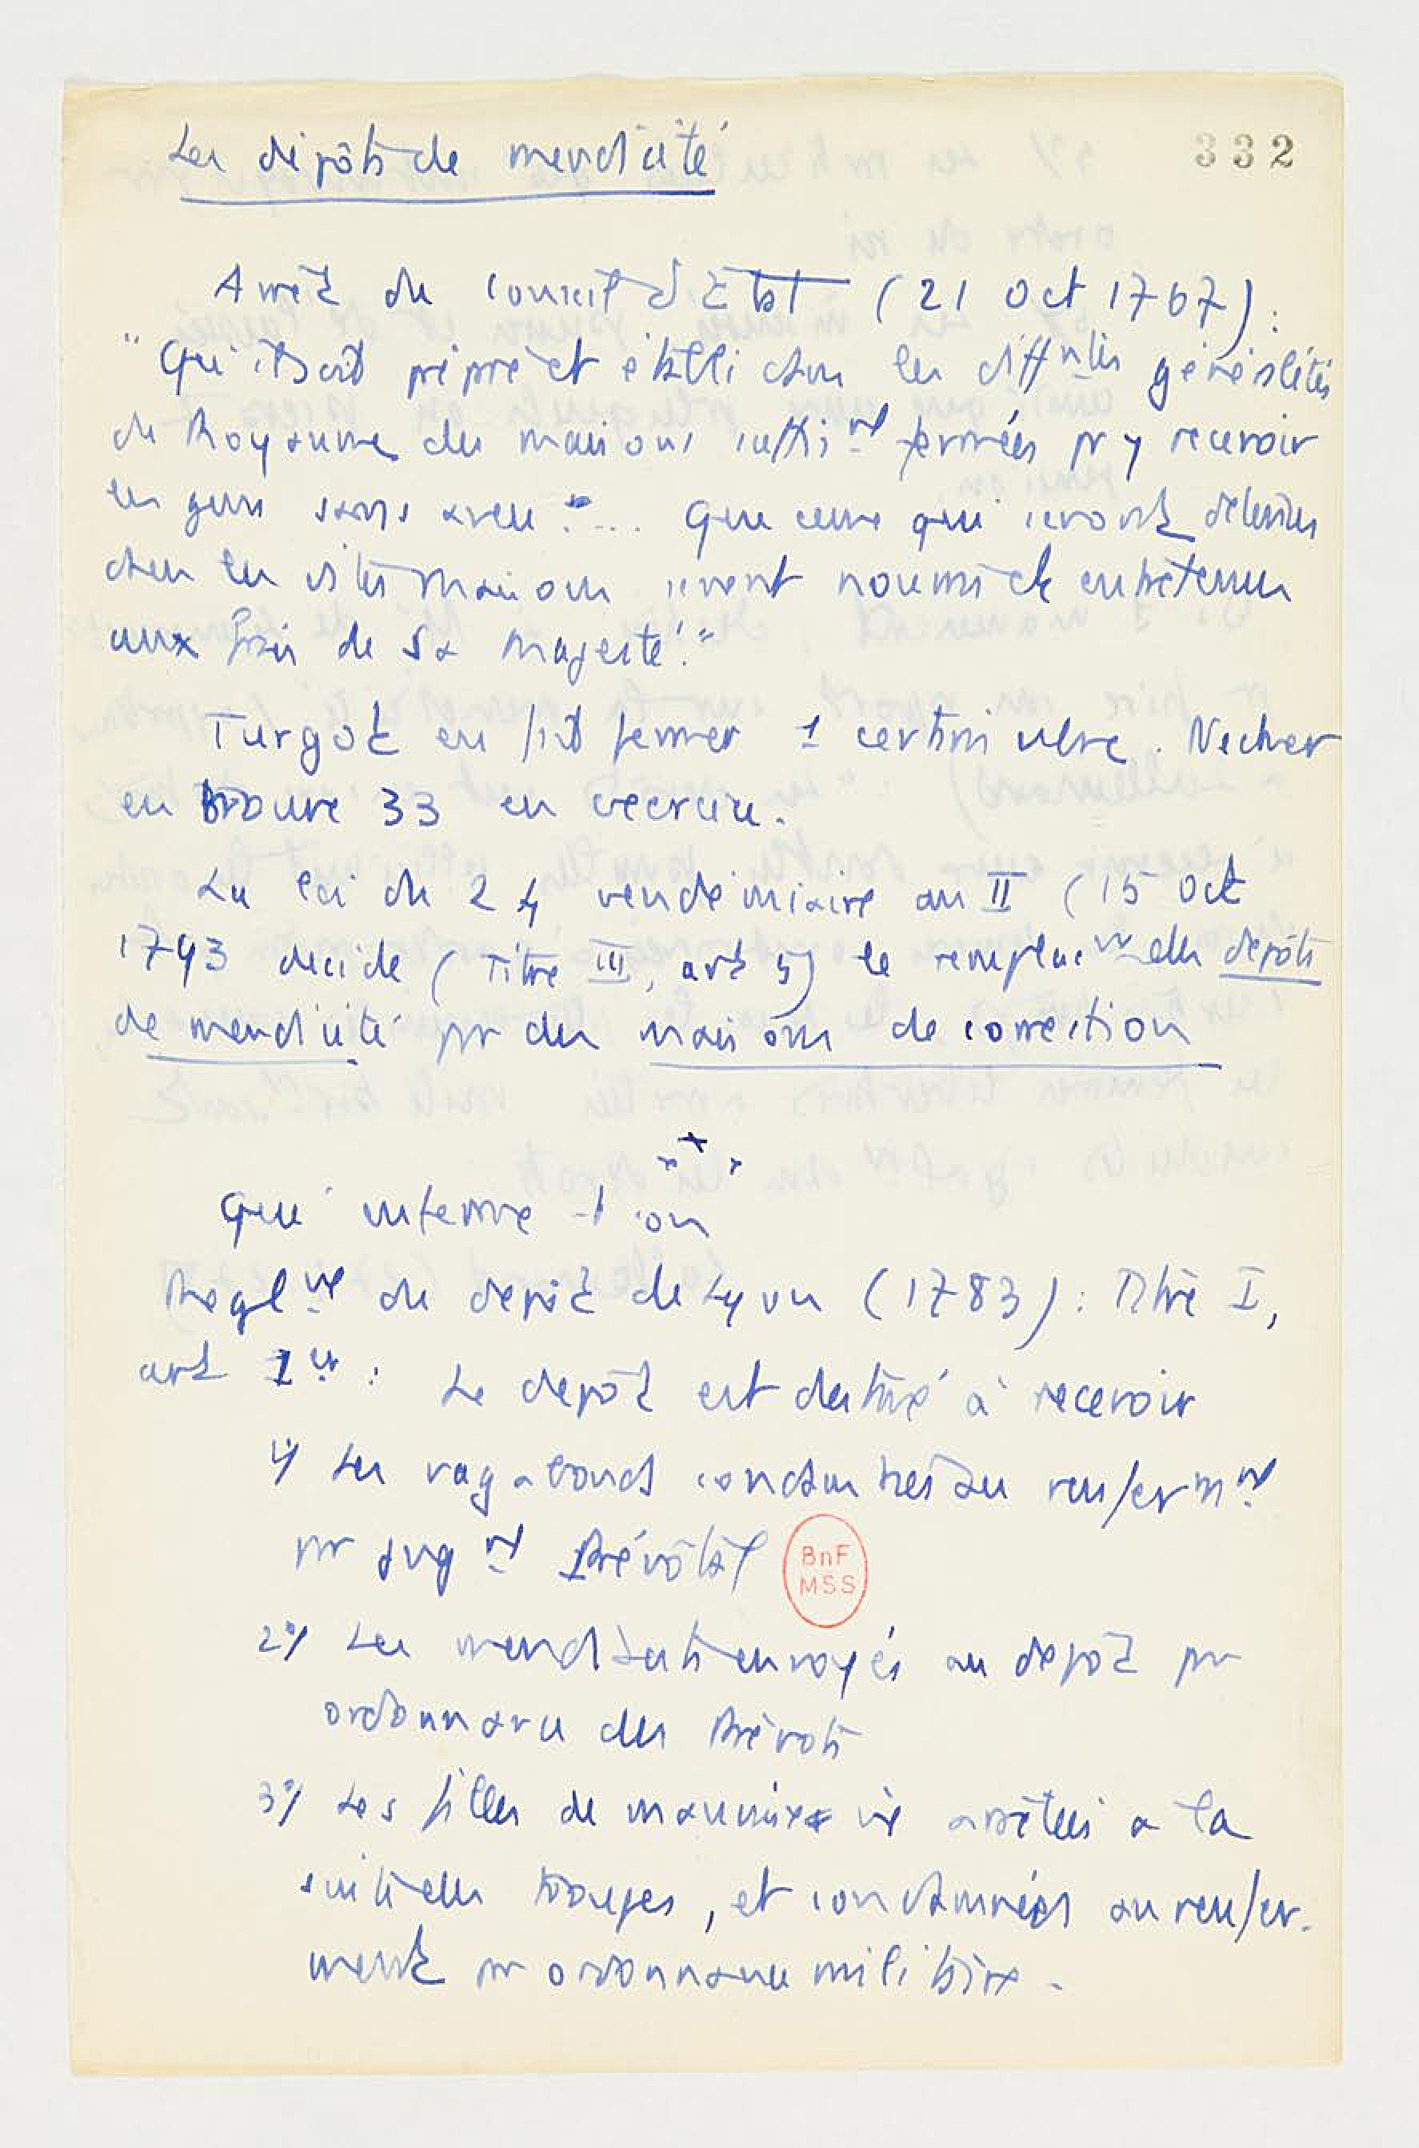 Les dépôts de mendicité
332
Arrêt du conseil d'Etat (21 oct 1767) :
"Qu'il soit préparé et établi dans les diffntes généralités
du Royaume des maisons suffisnt fermées pr y recevoir
les gens sans aveu"... Que ceux qui seront détenus
dans les dites maisons seront nourris et entretenus
aux frais de Sa Majesté."
Turgot en fait fermer 1 certain nbre. Necker
en trouve 33 en exercice.
La loi du 24 vendémiaire an II (15 oct
1793 décide (Titre III, art 5) le remplact des dépôts
de mendicité pr des maisons de correction
Qui interne-t-on
Reglnt du depôt de Lyon (1783) : Titre I,
art 1er : Le depôt est destiné à recevoir
1°/ Les vagabonds condamnés au renfermnt
pr jugnt Prévôtal
BnF
MSS
2°/ Les mendiants envoyés au depôt par
ordonnance des Prévots
3°/ Les filles de mauvaise vie arrêtées a la
suite des troupes, et condamnées au renfer-
ment pr ordonnance militaire.